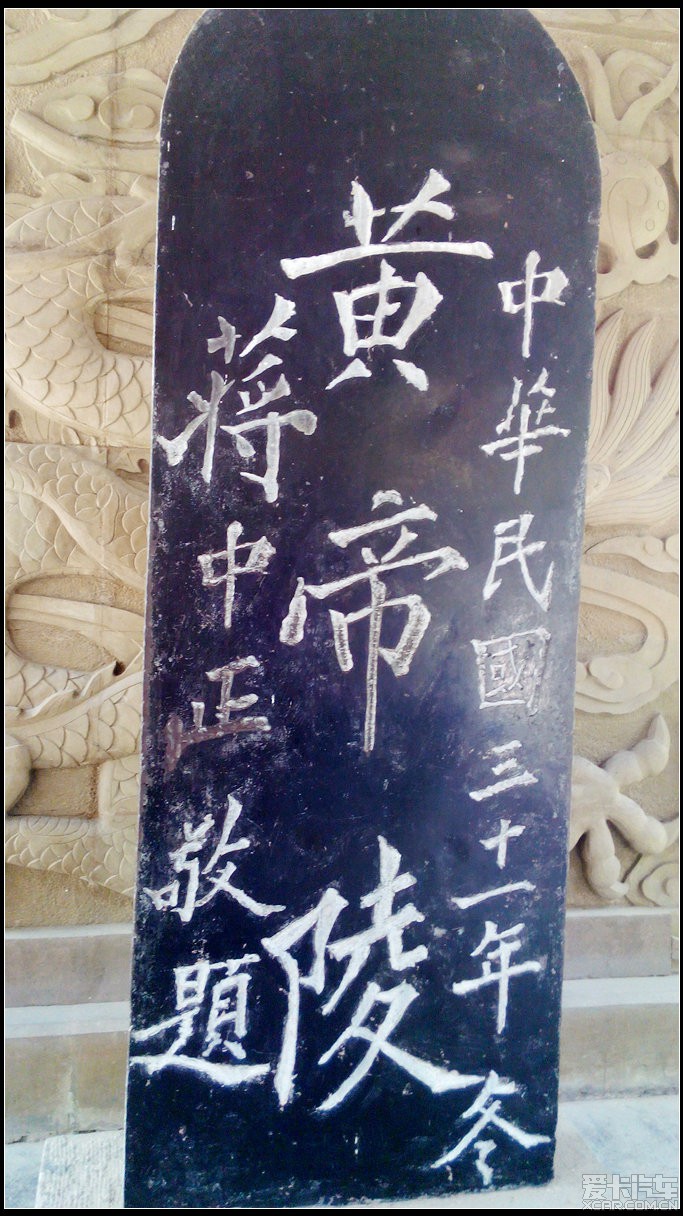 中華民國三十一年冬
黄帝陵
蔣中正敬題
爱卡汽车
XCAR.COM.CN